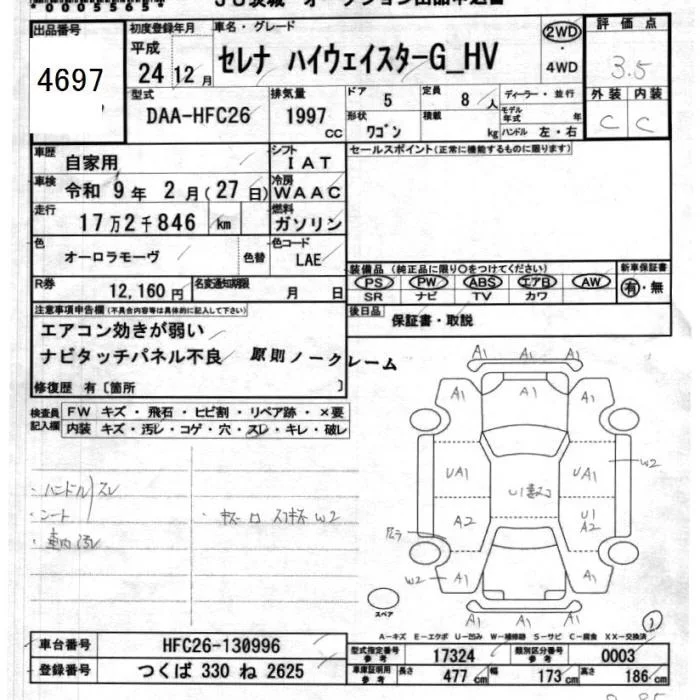 出品番号
4697
初度登録年月
平成
24 12 月
車名・グレード
セレナ ハイウェイスターG_HV
2WD
・
4WD
評価点
3.5
外装 内装
C C
型式
DAA-HFC26
排気量
1997 CC
ドア 5
定員 8 人
形状 ワゴン
積載 kg
ディーラー・並行
モデル年式 年
ハンドル 左・右
車歴 自家用
シフト IAT
車検 令和 9 年 2 月 (27 日)
冷房 WAAC
走行 17万2千846 km
燃料 ガソリン
色 オーロラモーヴ 色替
色コード LAE
R券 12,160 円
名変通知期限 月 日
セールスポイント(正常に機能するものに限ります)
装備品(純正品に限り〇をつけてください)
新車保証書
PS PW ABS エアB AW
SR ナビ TV カワ
有・無
後日品 保証書・取説
注意事項申告欄(不具合内容等は具体的に記入して下さい)
エアコン効きが弱い
ナビタッチパネル不良 原則ノークレーム
修復歴 有〔箇所 〕
検査員記入欄
FW キズ・飛石・ヒビ割・リペア跡・×要
内装 キズ・汚レ・コゲ・穴・スレ・キレ・破レ
・ハンドル スレ
・シート
・車内汚レ
A1 A1 A1
A1 A1 A1
UA1 UA1 W2
A2 U1 A2
W2 A1 A1 A1
A1 A1
スペア
A-キズ E-エクボ U-凹み W-補修跡 S-サビ C-腐食 XX-交換済
車台番号 HFC26-130996
登録番号 つくば 330 ね 2625
型式指定番号 参考 17324
類別区分番号 参考 0003
車庫証明用 参考 長さ 477 cm 幅 173 cm 高さ 186 cm